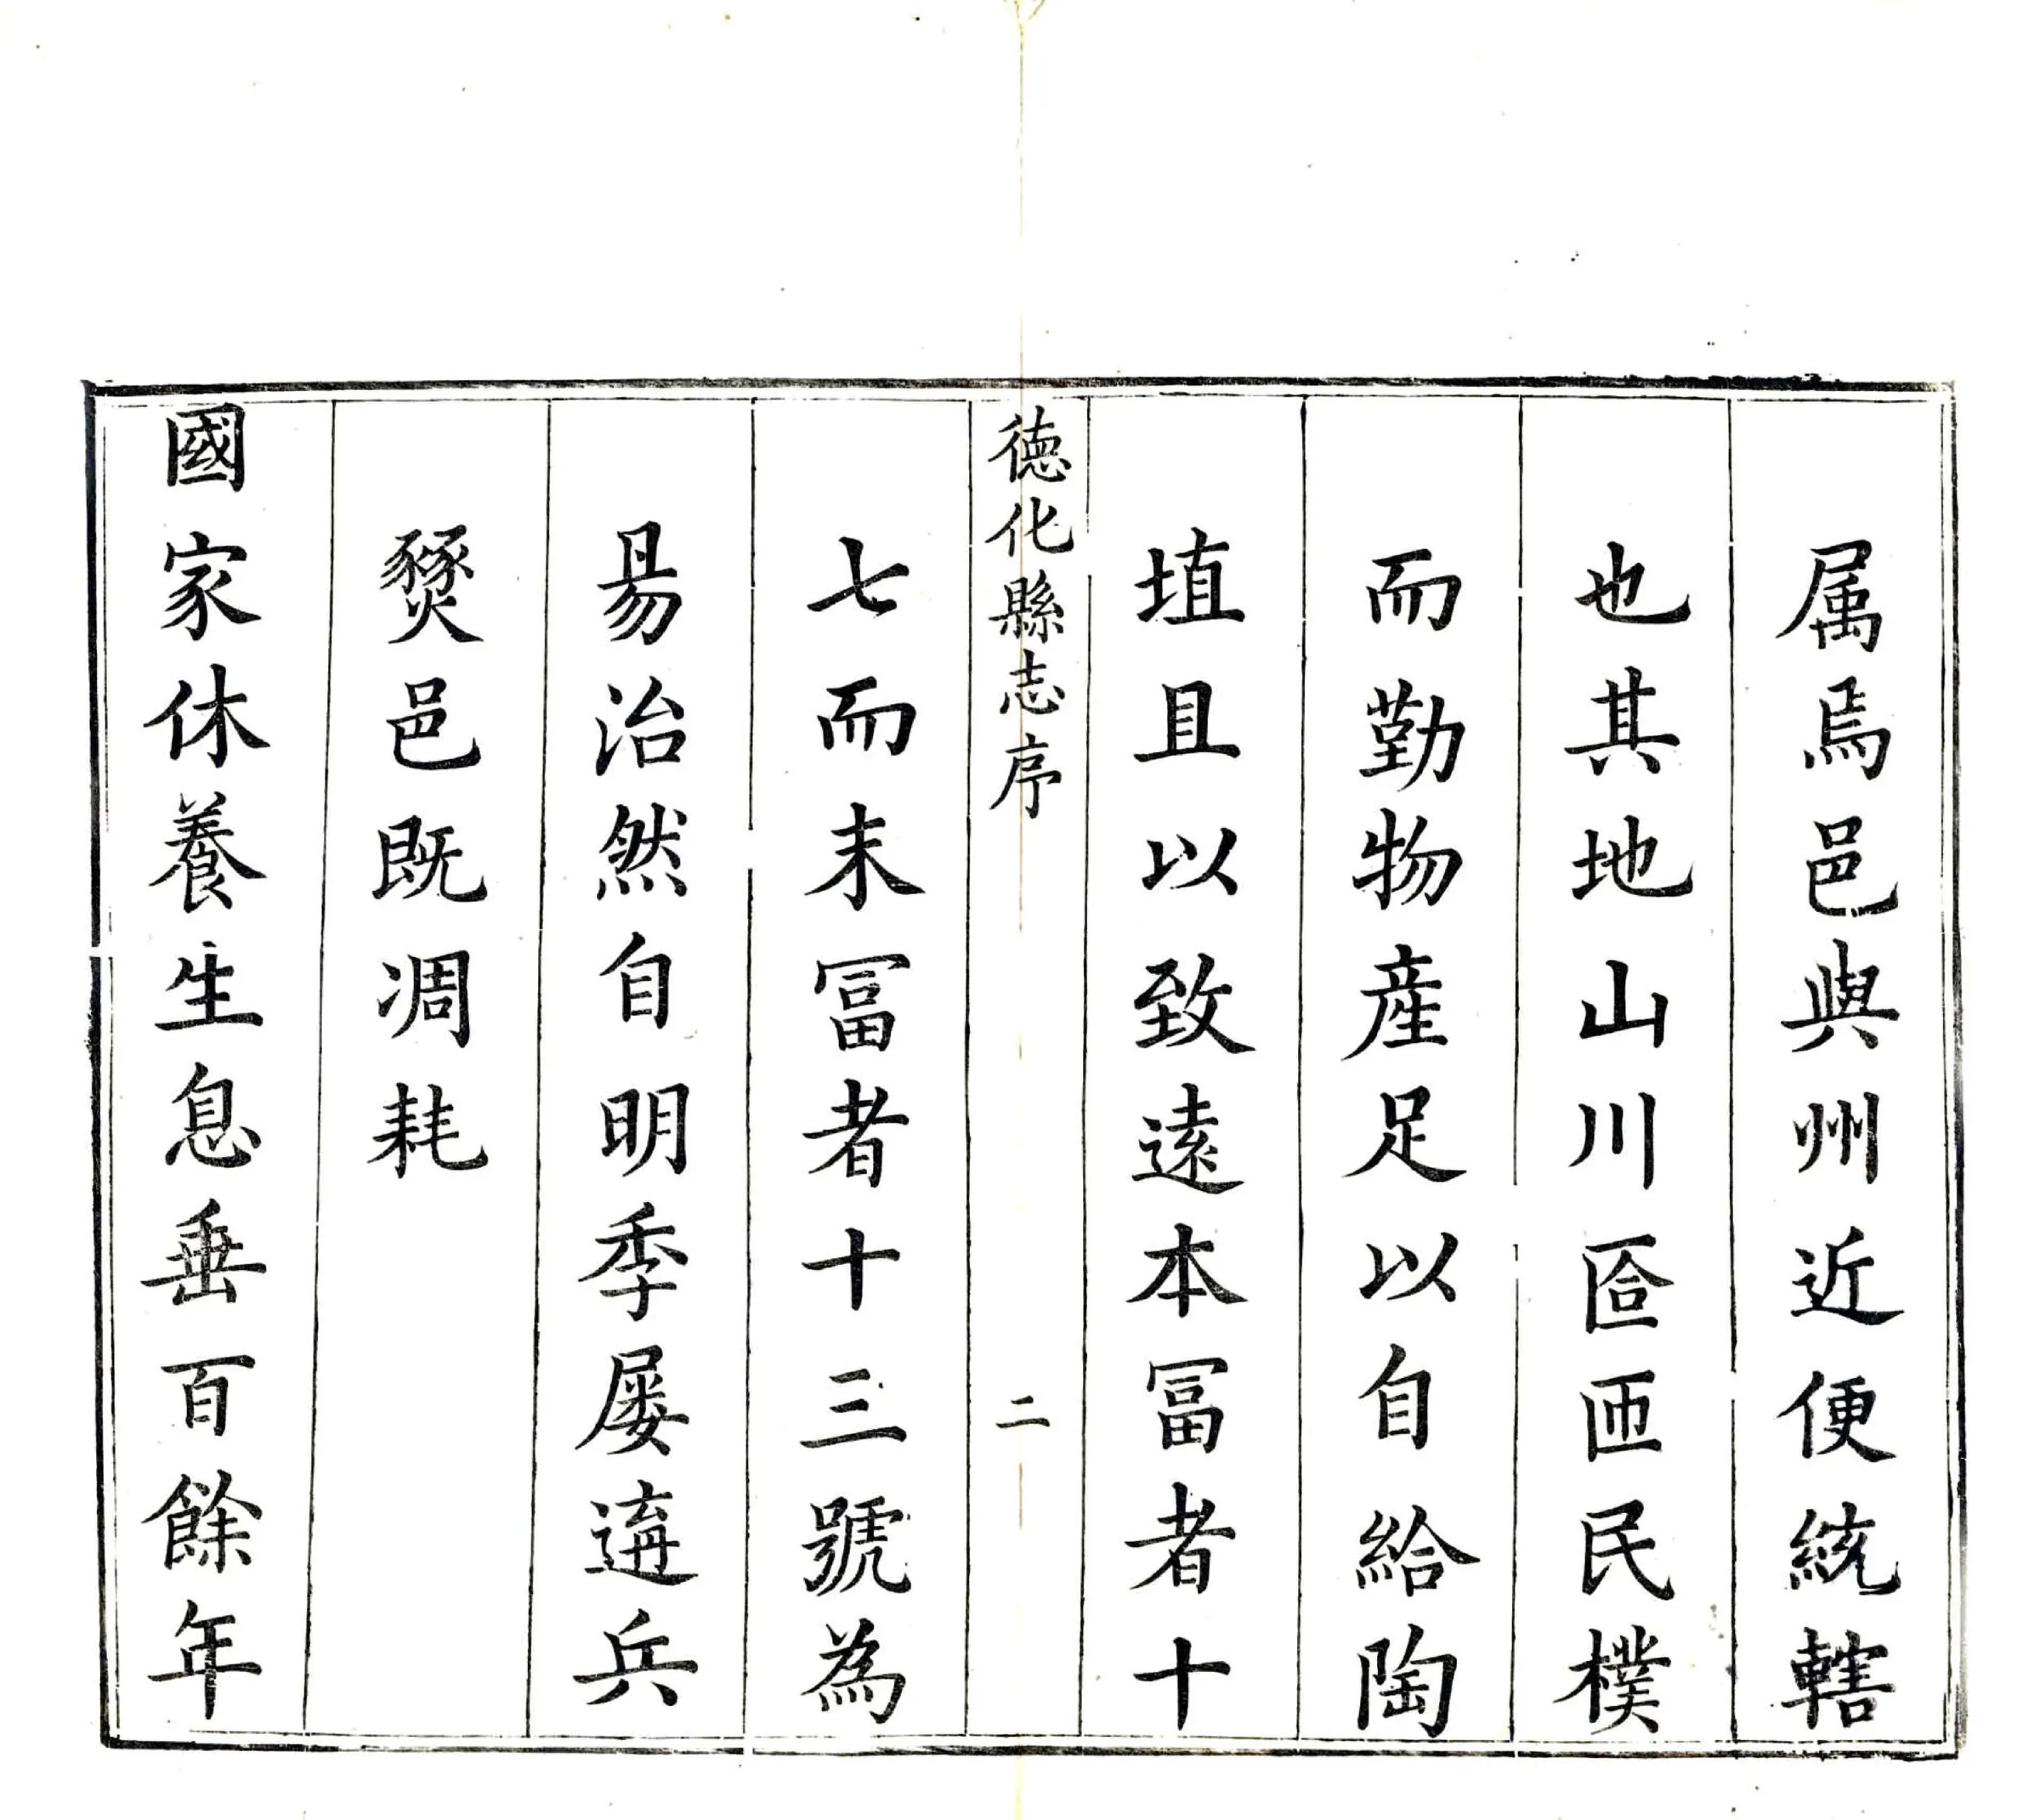 属焉邑與州近便統轄
也其地山川匼匝民樸
而勤物產足以自給陶
埴且以致遠本冨者十
德化縣志序
二
七而末冨者十三號為
易治然自明季屡遘兵
燹邑既凋耗
國家休養生息垂百餘年